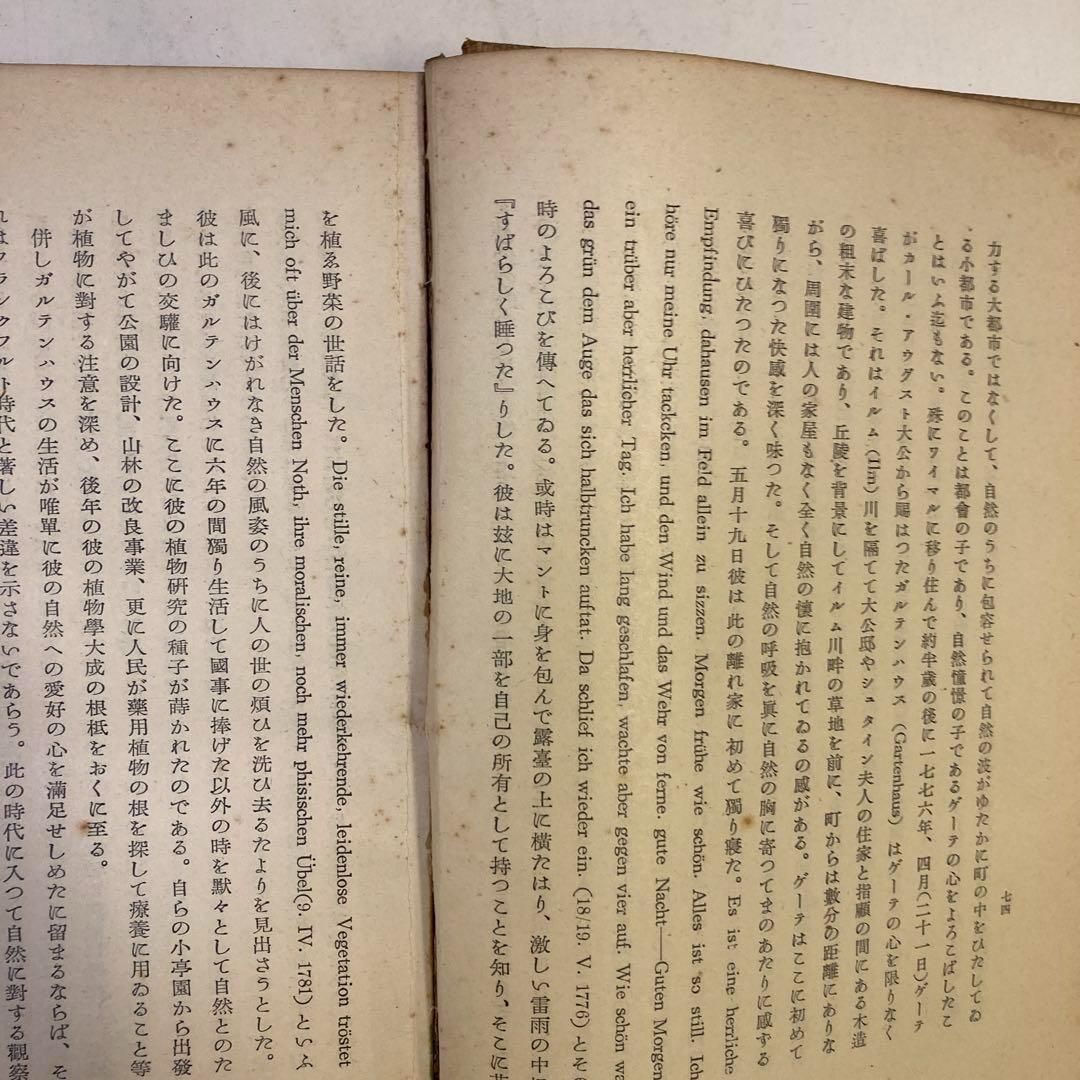 七四
力する大都市ではなくして、自然のうちに包容せられて自然の波がゆたかに町の中をひたしてゐ
る小都市である。このことは都會の子であり、自然憧憬の子であるゲーテの心をよろこばしたこ
とはいふ迄もない。殊にワイマルに移り住んで約半歳の後に一七七六年、四月(二十一日)ゲーテ
がカール・アウグスト大公から賜はつたガルテンハウス (Gartenhaus) はゲーテの心を限りなく
喜ばした。それはイルム(Ilm)川を隔てて大公邸やシュタイン夫人の住家と指顧の間にある木造
の粗末な建物であり、丘陵を背景にしてイルム川畔の草地を前に、町からは數分の距離にありな
がら、周圍には人の家屋もなく全く自然の懷に抱かれてゐるの感がある。ゲーテはここに初めて
獨りになつた快感を深く味つた。そして自然の呼吸を眞に自然の胸に寄つてまのあたりに感ずる
喜びにひたつたのである。 五月十九日彼は此の離れ家に初めて獨り寢た。Es ist eine herrliche
Empfindung, dahausen im Feld allein zu sizzen. Morgen frühe wie schön. Alles ist so still. Ich
höre nur meine Uhr tackcken, und den Wind und das Wehr von ferne. gute Nacht—Guten Morgen
ein trüber aber herrlicher Tag. Ich habe lang geschlafen, wachte aber gegen vier auf. Wie schön wa
das grün dem Auge das sich halbtruncken auftat. Da schlief ich wieder ein. (18/19. V. 1776) とそ
時のよろこびを傳へてゐる。或時はマントに身を包んで露臺の上に横たはり、激しい雷雨の中に
『すばらしく睡つた』りした。彼は玆に大地の一部を自己の所有として持つことを知り、そこに
を植ゑ野菜の世話をした。 Die stille, reine, immer wiederkehrende, leidenlose Vegetation tröstet
mich oft über der Menschen Noth, ihre moralischen, noch mehr phisischen Übel(9. IV. 1781) といふ
風に、後にはけがれなき自然の風姿のうちに人の世の煩ひを洗ひ去るたよりを見出さうとした。
彼は此のガルテンハウスに六年の間獨り生活して國事に捧げた以外の時を默々として自然とのた
ましひの交驩に向けた。ここに彼の植物研究の種子が蒔かれたのである。自らの小亭園から出發
してやがて公園の設計、山林の改良事業、更に人民が藥用植物の根を探して療養に用ゐること等
が植物に對する注意を深め、後年の彼の植物學大成の根柢をおくに至る。
併しガルテンハウスの生活が唯單に彼の自然への愛好の心を滿足せしめたに留まるならば、そ
れはフランクフルト時代と著しい差違を示さないであらう。此の時代に入つて自然に對する觀察